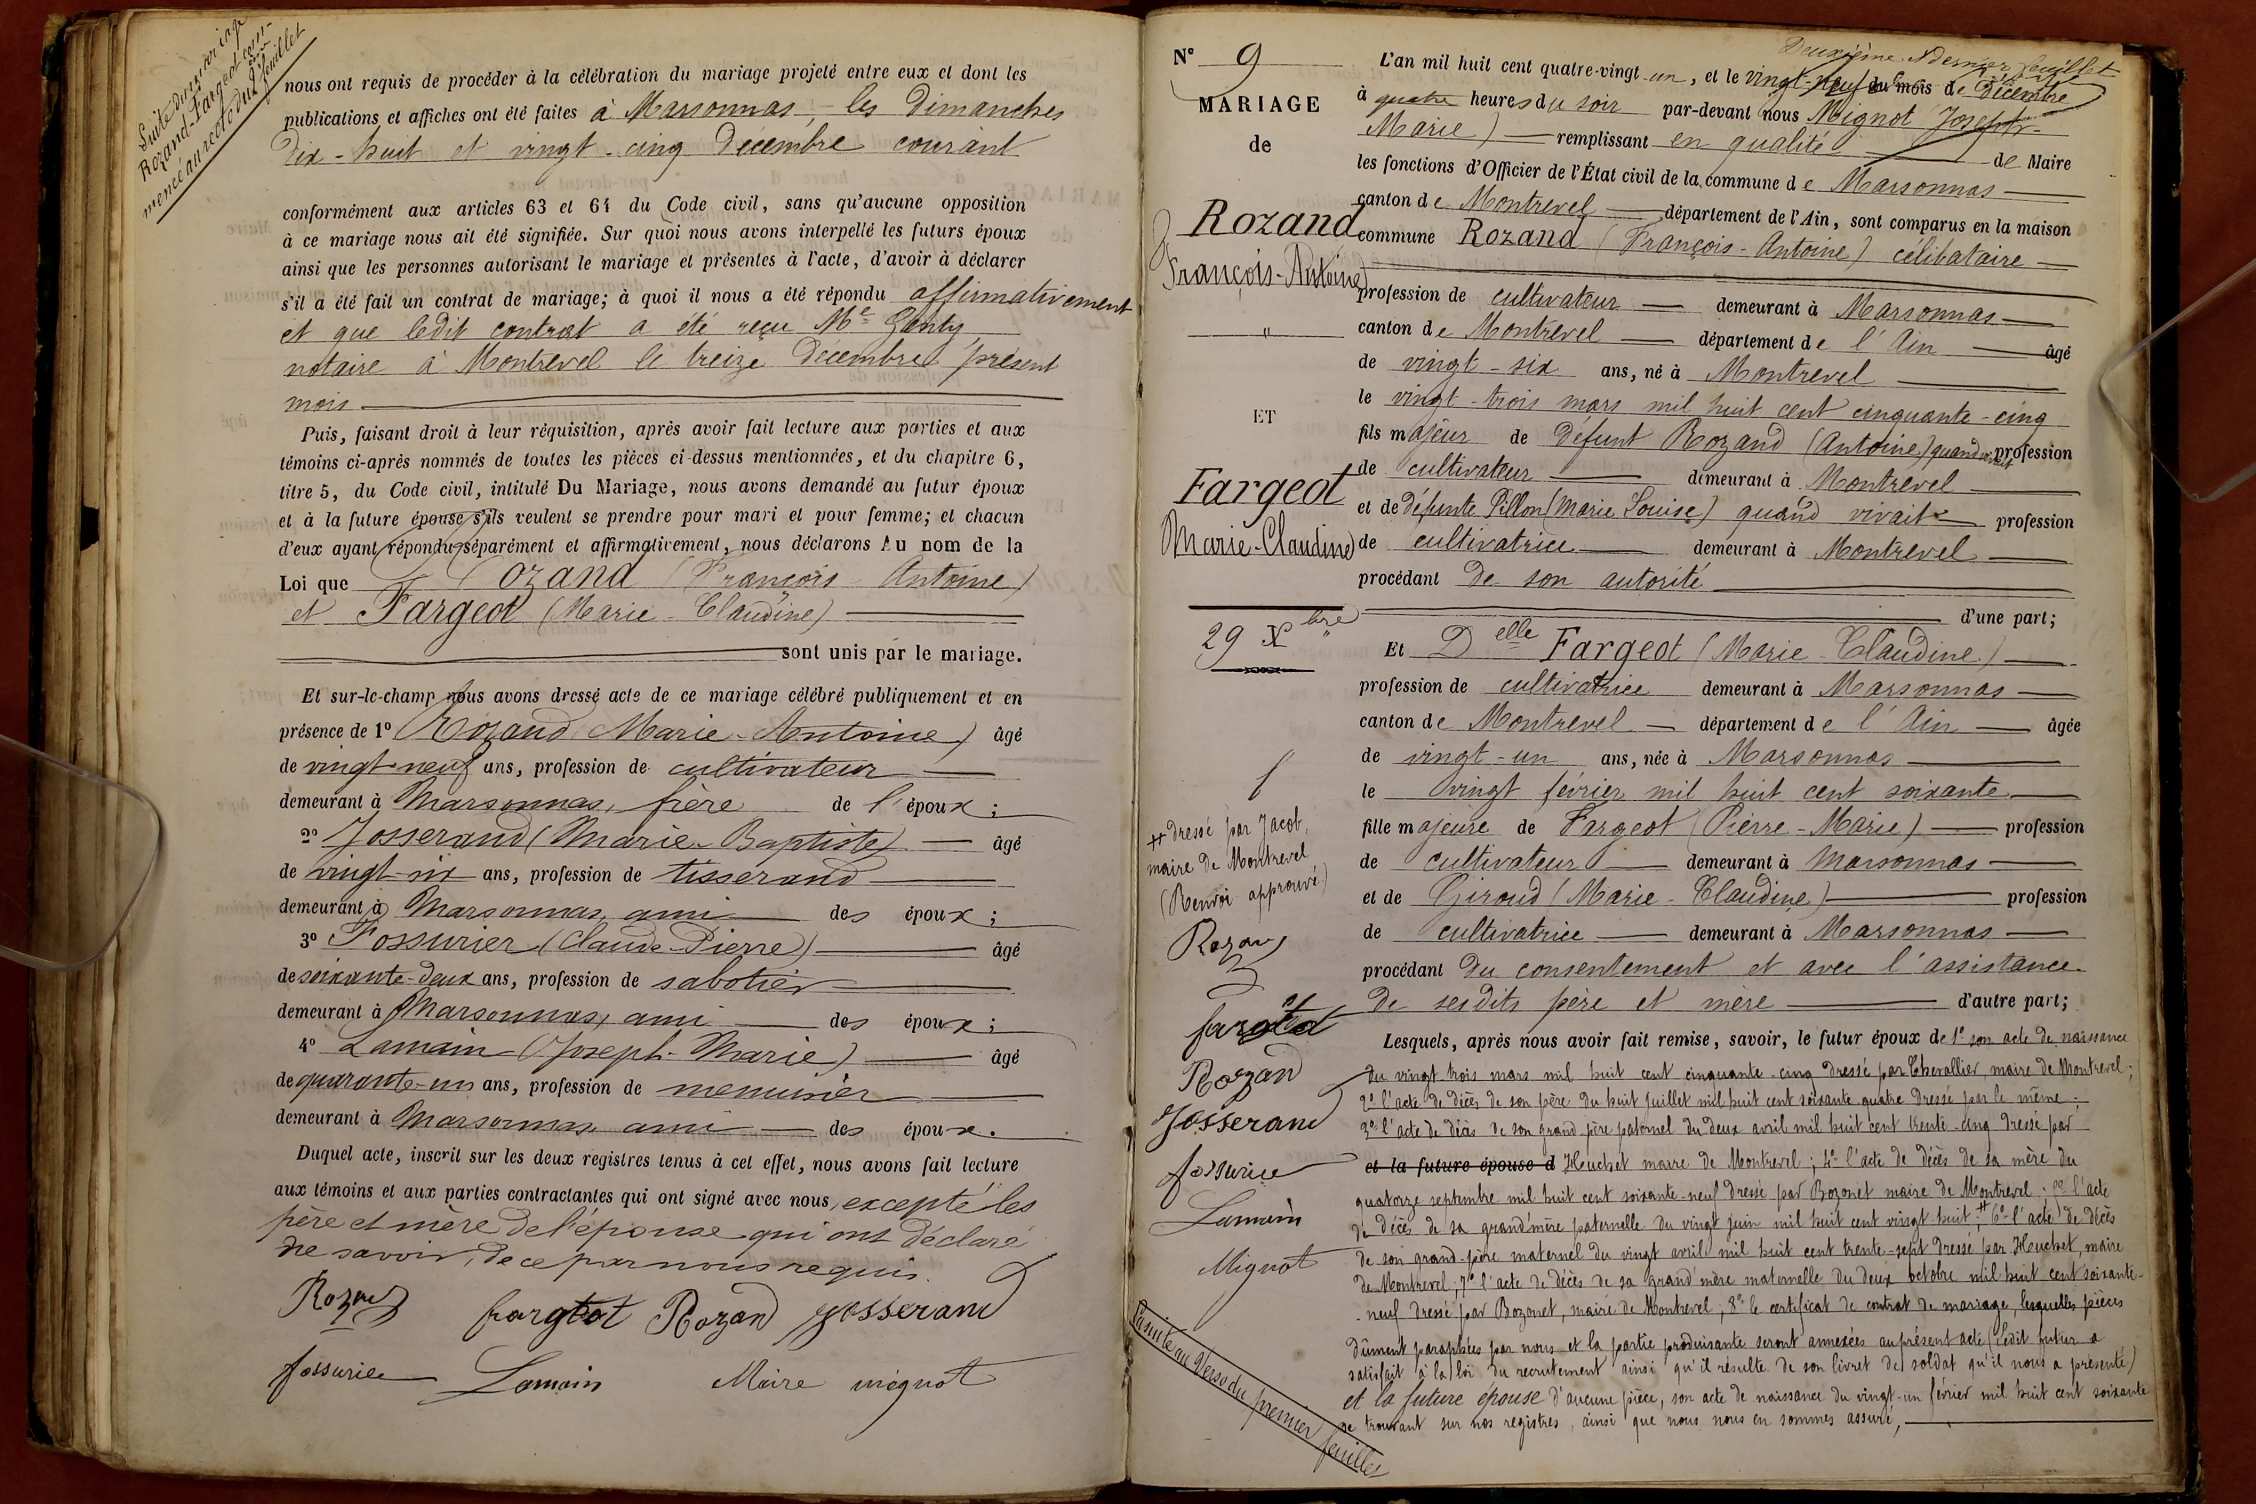 Suite du mariage
Rozand-Fargeot com-
mencé au recto du 2e feuillet
nous ont requis de procéder à la célébration du mariage projeté entre eux et dont les
publications et affiches ont été faites à Marsonnas, les dimanches
dix-huit et vingt-cinq décembre courant
conformément aux articles 63 et 64 du Code civil, sans qu'aucune opposition
à ce mariage nous ait été signifiée. Sur quoi nous avons interpellé les futurs époux
ainsi que les personnes autorisant le mariage et présentes à l'acte, d'avoir à déclarer
s'il a été fait un contrat de mariage; à quoi il nous a été répondu affirmativement
et que ledit contrat a été reçu Me Genty
notaire à Montrevel le treize décembre présent
mois
Puis, faisant droit à leur réquisition, après avoir fait lecture aux parties et aux
témoins ci-après nommés de toutes les pièces ci-dessus mentionnées, et du chapitre 6,
titre 5, du Code civil, intitulé Du Mariage, nous avons demandé au futur époux
et à la future épouse s'ils veulent se prendre pour mari et pour femme; et chacun
d'eux ayant répondu séparément et affirmativement, nous déclarons Au nom de la
Loi que Rozand (François-Antoine)
et Fargeot (Marie-Claudine)
sont unis par le mariage.
Et sur-le-champ nous avons dressé acte de ce mariage célébré publiquement et en
présence de 1° Rozand (Marie-Antoine) âgé
de vingt-neuf ans, profession de cultivateur
demeurant à Marsonnas, frère de l'époux;
2° Josserand (Marie-Baptiste) âgé
de vingt-six ans, profession de tisserand
demeurant à Marsonnas, ami des époux;
3° Fossurier (Claude-Pierre) âgé
de soixante-deux ans, profession de sabotier
demeurant à Marsonnas, ami des époux;
4° Lamain (Joseph-Marie) âgé
de quarante-un ans, profession de menuisier
demeurant à Marsonnas, ami des époux.
Duquel acte, inscrit sur les deux registres tenus à cet effet, nous avons fait lecture
aux témoins et aux parties contractantes qui ont signé avec nous, excepté les
père et mère de l'épouse qui ont déclaré
ne savoir, de ce par nous requis.
Rozand fargeot Rozand Josserand
fossurier Lamain Maire mignot
Deuxième & dernier feuillet
N° 9
MARIAGE
de
Rozand
(François-Antoine)
"
ET
Fargeot
(Marie-Claudine)
29 Xbre
++ dressé par Jacob,
maire de Montrevel
(Renvoi approuvé)
Rozand
fargeot
Rozand
Josserand
fossurier
Lamain
Mignot
La suite au verso du premier feuillet
L'an mil huit cent quatre-vingt-un, et le vingt-neuf du mois de décembre
à quatre heures du soir par-devant nous Mignot (Joseph-
Marie) remplissant en qualité de Maire
les fonctions d'Officier de l'État civil de la commune de Marsonnas
canton de Montrevel département de l'Ain, sont comparus en la maison
commune Rozand (François-Antoine) célibataire
profession de cultivateur demeurant à Marsonnas
canton de Montrevel département de l'Ain âgé
de vingt-six ans, né à Montrevel
le vingt-trois mars mil huit cent cinquante-cinq
fils majeur de défunt Rozand (Antoine) quand vivait profession
de cultivateur demeurant à Montrevel
et de défunte Pillon (Marie Louise) quand vivait profession
de cultivatrice demeurant à Montrevel
procédant de son autorité
d'une part;
Et Delle Fargeot (Marie-Claudine)
profession de cultivatrice demeurant à Marsonnas
canton de Montrevel département de l'Ain âgée
de vingt-un ans, née à Marsonnas
le vingt février mil huit cent soixante
fille majeure de Fargeot (Pierre-Marie) profession
de cultivateur demeurant à Marsonnas
et de Giroud (Marie-Claudine) profession
de cultivatrice demeurant à Marsonnas
procédant du consentement et avec l'assistance
de sesdits père et mère d'autre part;
Lesquels, après nous avoir fait remise, savoir, le futur époux de 1° son acte de naissance
du vingt trois mars mil huit cent cinquante-cinq dressé par Chevallier, maire de Montrevel;
2° l'acte de décès de son père du huit juillet mil huit cent soixante quatre dressé par le même;
3° l'acte de décès de son grand père paternel du deux avril mil huit cent trente-cinq dressé par
et la future épouse d Huchet maire de Montrevel; 4° l'acte de décès de sa mère du
quatorze septembre mil huit cent soixante-neuf dressé par Bozonet maire de Montrevel; 5° l'acte
de décès de sa grand'mère paternelle du vingt juin mil huit cent vingt huit; ++ 6° l'acte de décès
de son grand-père maternel du vingt avril mil huit cent trente-sept dressé par Huchet, maire
de Montrevel; 7° l'acte de décès de sa grand'mère maternelle du deux octobre mil huit cent soixante-
-neuf dressé par Bozonet, maire de Montrevel, 8° le certificat de contrat de mariage, lesquelles pièces
dûment paraphées par nous et la partie produisante seront annexées au présent acte (Ledit futur a
satisfait à la loi du recrutement ainsi qu'il résulte de son livret de soldat qu'il nous a présenté)
et la future épouse d'aucune pièce, son acte de naissance du vingt-un février mil huit cent soixante
se trouvant sur nos registres, ainsi que nous nous en sommes assuré,